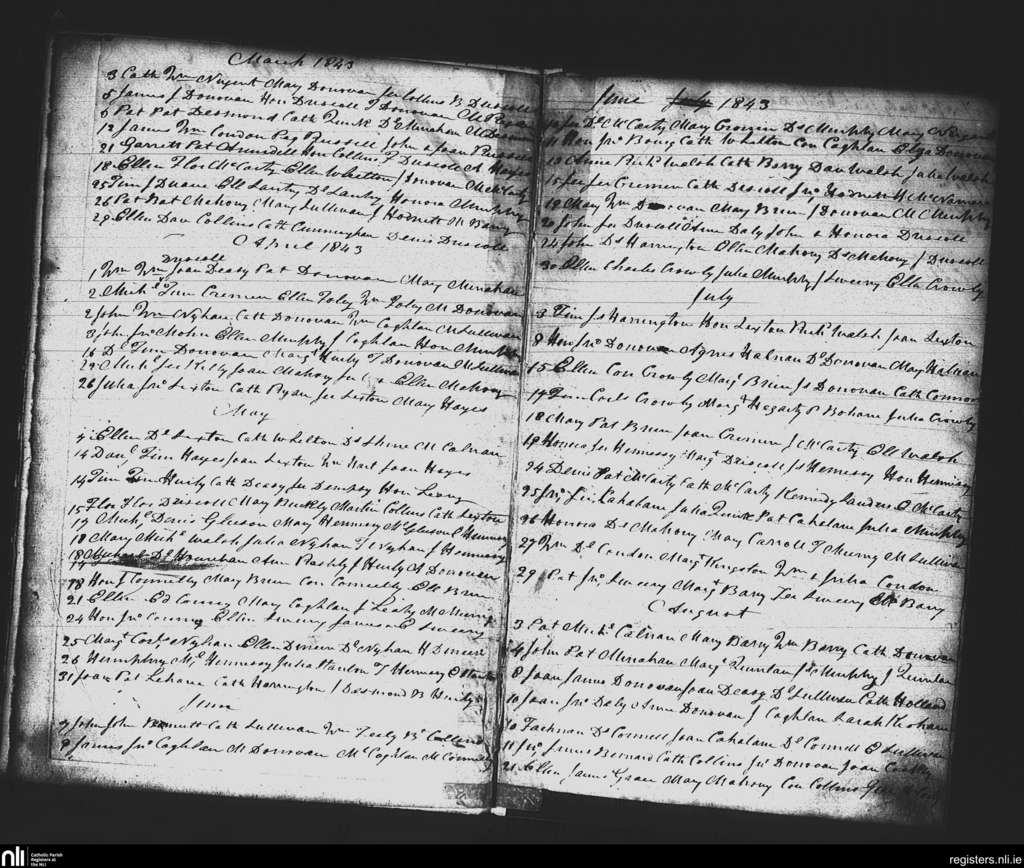 March 1843
3 Cath Wm Nugent Mary Donovan Jer Collins B Driscoll
5 James J Donovan Hon Driscoll T Donovan M Ryan
6 Pat Pat Desmond Cath Dl Minahan
12 James Wm Condon Peg Russell John & Joan Russell
21 Garrett Pat Hon Collins T Driscoll Hayes
18 Ellen Flor McCarty Ellen Whelton J Donovan M McCarty
25 Tim J Duane Ell Lantry Dl Lantry Honora Murphy
26 Pat Pat Mahony Mary Sullivan J Hodnett M Barry
29 Ellen Dan Collins Cath Cunninghan Denis Driscoll
April 1843
Driscoll
1 Wm Wm Joan Deasy Pat Donovan Mary Minahan
2 Michl Tim Cremen Ellen Foley Wm Foley M Donovan
2 John Wm Nyhan Cath Donovan Wm Coghlan M Sullivan
3 John Jno Ellen Murphy J Coghlan Hon Murphy
16 Dl Tim Donovan Margt Hurly T Donovan M Sullivan
22 Michl Jer Kelly Joan Mahony Ellen Mahony
26 Julia Jno Sexton Cath Ryan Jer Sexton Mary Hayes
May
Ellen Dl Sexton Cath Whelton Dl Shine M Calnan
14 Danl Tim Hayes Joan Sexton Wm Hart Joan Hayes
14 Tim Tim Hurly Cath Deasy Jer Dempsy Hon Leary
15 Flor Flor Driscoll Mary Buckly Martin Collins Cath Sexton
17 Michl Denis Gleeson Mary Hennesy M Gleeson Hennesy
18 Mary Michl Walsh Julia Nyhan T Nyhan J Hennesy
18 Minahan Ann J Hurly M Donovan
18 Hon J Connelly Mary Brien Con Connelly Ell Brien
21 Ellen Ed Mary Coghlan J Leahy M Murry
24 Hon Jno Ellen Sweeny James C Sweeny
25 Margt Nyhan Ellen Dineen Dl Nyhan H Dineen
26 Humphry Ml Hennesy Julia T Hennesy
31 Joan Pat Lehane Cath Harrington J Desmond B Hurly
June
7 John John Cath Sullivan Wm Feely
9 James Jno Coghlan M Donovan M Coghlan M
June July 1843
Dl McCarty Mary Cremen Dl Murphy Mary
11 Hon Jno Bourg Cath Whelton Con Coghlan Eliza Donovan
12 Anne Richd Walsh Cath Berry Dan Walsh Julia Walsh
15 Jer Jer Cremen Cath Driscoll Jno Hodnett H McNamera
19 Mary Wm Donovan Mary Brien J Donovan M Murphy
20 John Jer Driscoll Anne Daly John & Honora Driscoll
24 John Dl Harrington Ellen Mahony Dl Mahony J Driscoll
30 Ellen Charles Crowly Julia Murphy J Sweeny Ellen Crowly
July
3 Tim Js Harrington Hon Sexton Richd Walsh Joan Sexton
8 Hon Jno Donovan Agnes Halnan Dl Donovan Mary Halnan
15 Ellen Con Crowly Margt Brien Js Donovan Cath Connor
17 Tim Corls Crowly Margt Hegarty P Bohane Julia Crowly
18 Mary Pat Brien Joan Cremen J McCarty Ell Walsh
19 Honora Jer Hennessy Margt Driscoll Js Hennessy Hon Hennessy
24 Denis Pat McCarty Cath McCarty Kennedy Sanders E McCarty
25 Jno Jer Cahalane Julia Quirke Pat Cahalane Julia Murphy
26 Honora Dl Mahony Mary Carroll T Murry M Sullivan
27 Wm Dl Condon Margt Kingston Wm & Julia Condon
29 Pat Jno Sweeny Margt Barry Jer Sweeny Barry
August
3 Pat Michl Calnan Mary Barry Wm Barry Cath Donovan
4 John Pat Minahan Margt Quinlan Js Murphy J Quinlan
8 Joan James Donovan Joan Deasy Dl Sullivan Cath Holland
10 Joan Jno Daly Anne Donovan J Coghlan Sarah Kohane
10 Fachnan Dl Connell Joan Cahalane Dl Connell E Sullivan
11 Jno James Bernard Cath Collins Jno Donovan Joan
21 Ellen James Grace Mary Mahony Con Collins
nli Catholic Parish Registers at the NLI
registers.nli.ie